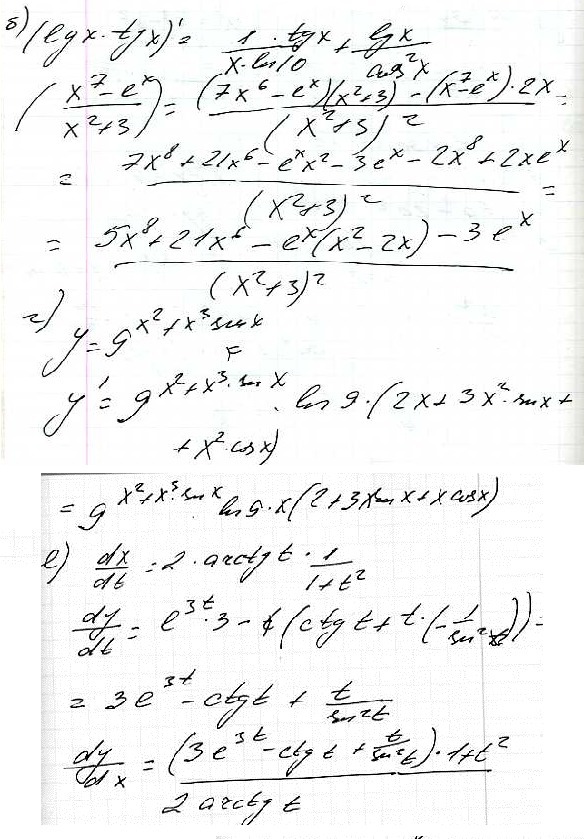 б) (lgx·tgx)' = 1·tgx/(x·ln10) + lgx/cos²x
((x⁷-eˣ)/(x²+3))' = ((7x⁶-eˣ)(x²+3) - (x⁷-eˣ)·2x)/(x²+3)² =
= (7x⁸+21x⁶-eˣx²-3eˣ-2x⁸+2xeˣ)/(x²+3)² =
= (5x⁸+21x⁶-eˣ(x²-2x)-3eˣ)/(x²+3)²
г) y = 9^(x²+x³sinx)
y' = 9^(x²+x³·sinx) · ln9·(2x+3x²·sinx+
+x²·cosx)
= 9^(x²+x³·sinx) · ln9·x(2+3xsinx+xcosx)
е) dx/dt = 2·arctgt·1/(1+t²)
dy/dt = e^(3t)·3 - (ctgt+t·(-1/sin²t)) =
= 3e^(3t) - ctgt + t/sin²t
dy/dx = ((3e^(3t) - ctgt + t/sin²t)·1+t²)/(2arctgt)